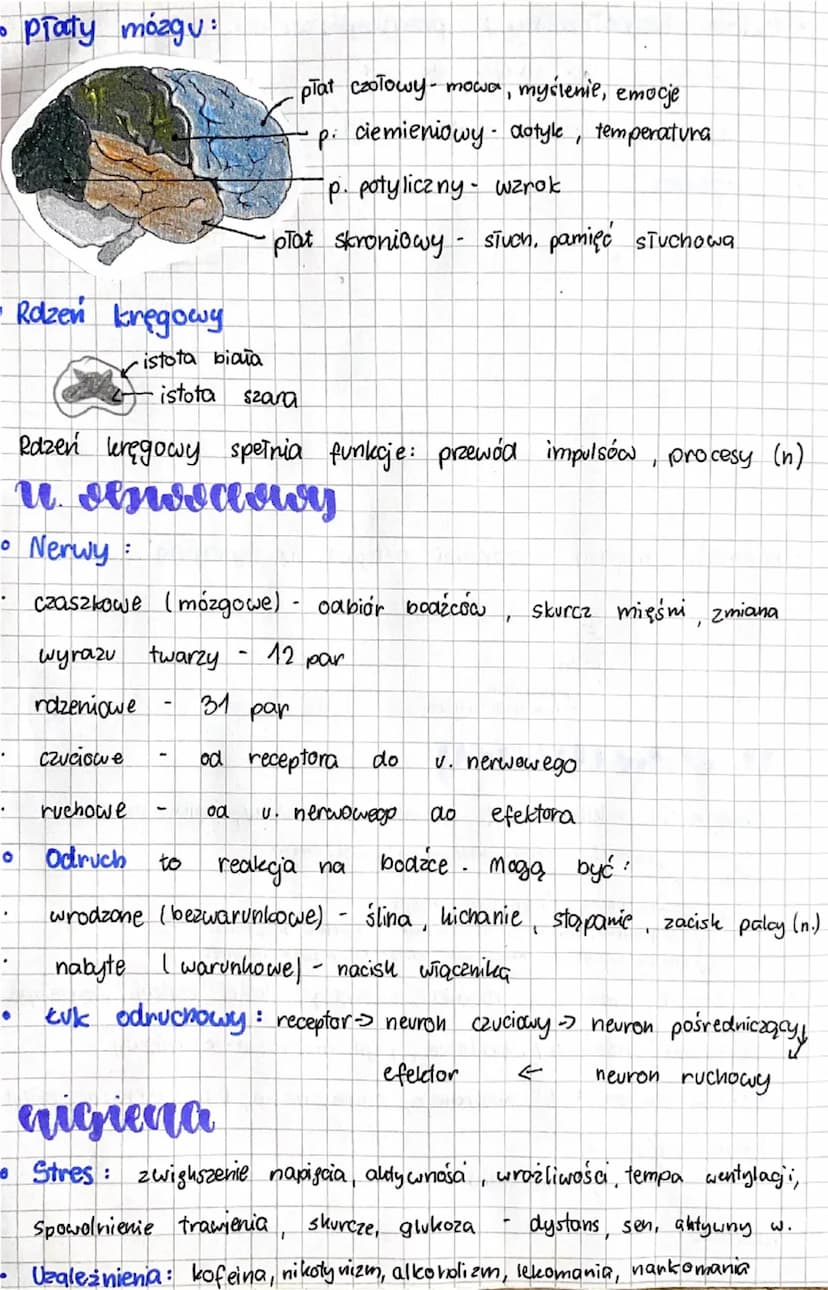 płaty mózgu:
płat czołowy - mowa, myślenie, emocje
p. ciemieniowy - dotyk, temperatura
p. potyliczny - wzrok
płat skroniowy - słuch, pamięć słuchowa
Rdzeń kręgowy
istota biała
istota szara
Rdzeń kręgowy spełnia funkcje: przewód impulsów, procesy (n)
u. obwodowy
Nerwy:
czaszkowe (mózgowe) - odbiór bodźców, skurcz mięśni, zmiana
wyrazu twarzy - 12 par
rdzeniowe - 31 par
czuciowe - od receptora do u. nerwowego
ruchowe - od u. nerwowego do efektora
Odruch to reakcja na bodźce. Mogą być:
wrodzone (bezwarunkowe) - ślina, kichanie, stąpanie, zacisk palcy (n.)
nabyte (warunkowe) - nacisk włącznika
Łuk odruchowy: receptor -> neuron czuciowy -> neuron pośredniczący ↓
efektor ← neuron ruchowy
higiena
Stres: zwiększenie napięcia, aktywności, wrażliwości, tempa wentylacji,
spowolnienie trawienia, skurcze, glukoza - dystans, sen, aktywny w.
Uzależnienia: kofeina, nikotynizm, alkoholizm, lekomania, narkomania